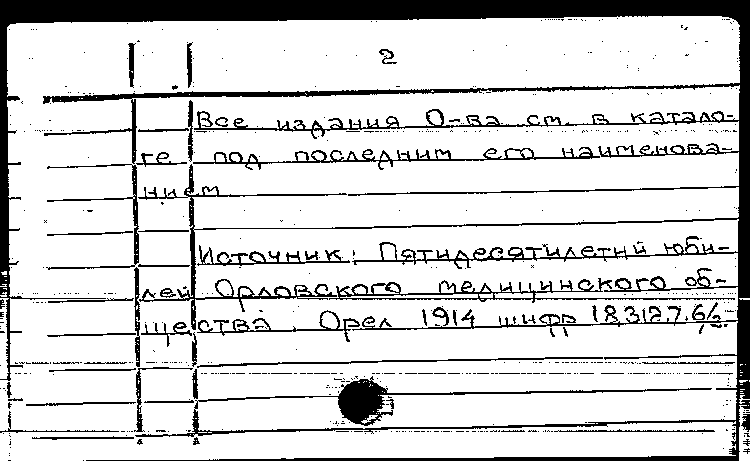 2
Все издания О-ва см. в катало-
ге под последним его наименова-
нием
Источник: Пятидесятилетний юби-
лей Орловского медицинского об-
щества. Орел 1914 шифр